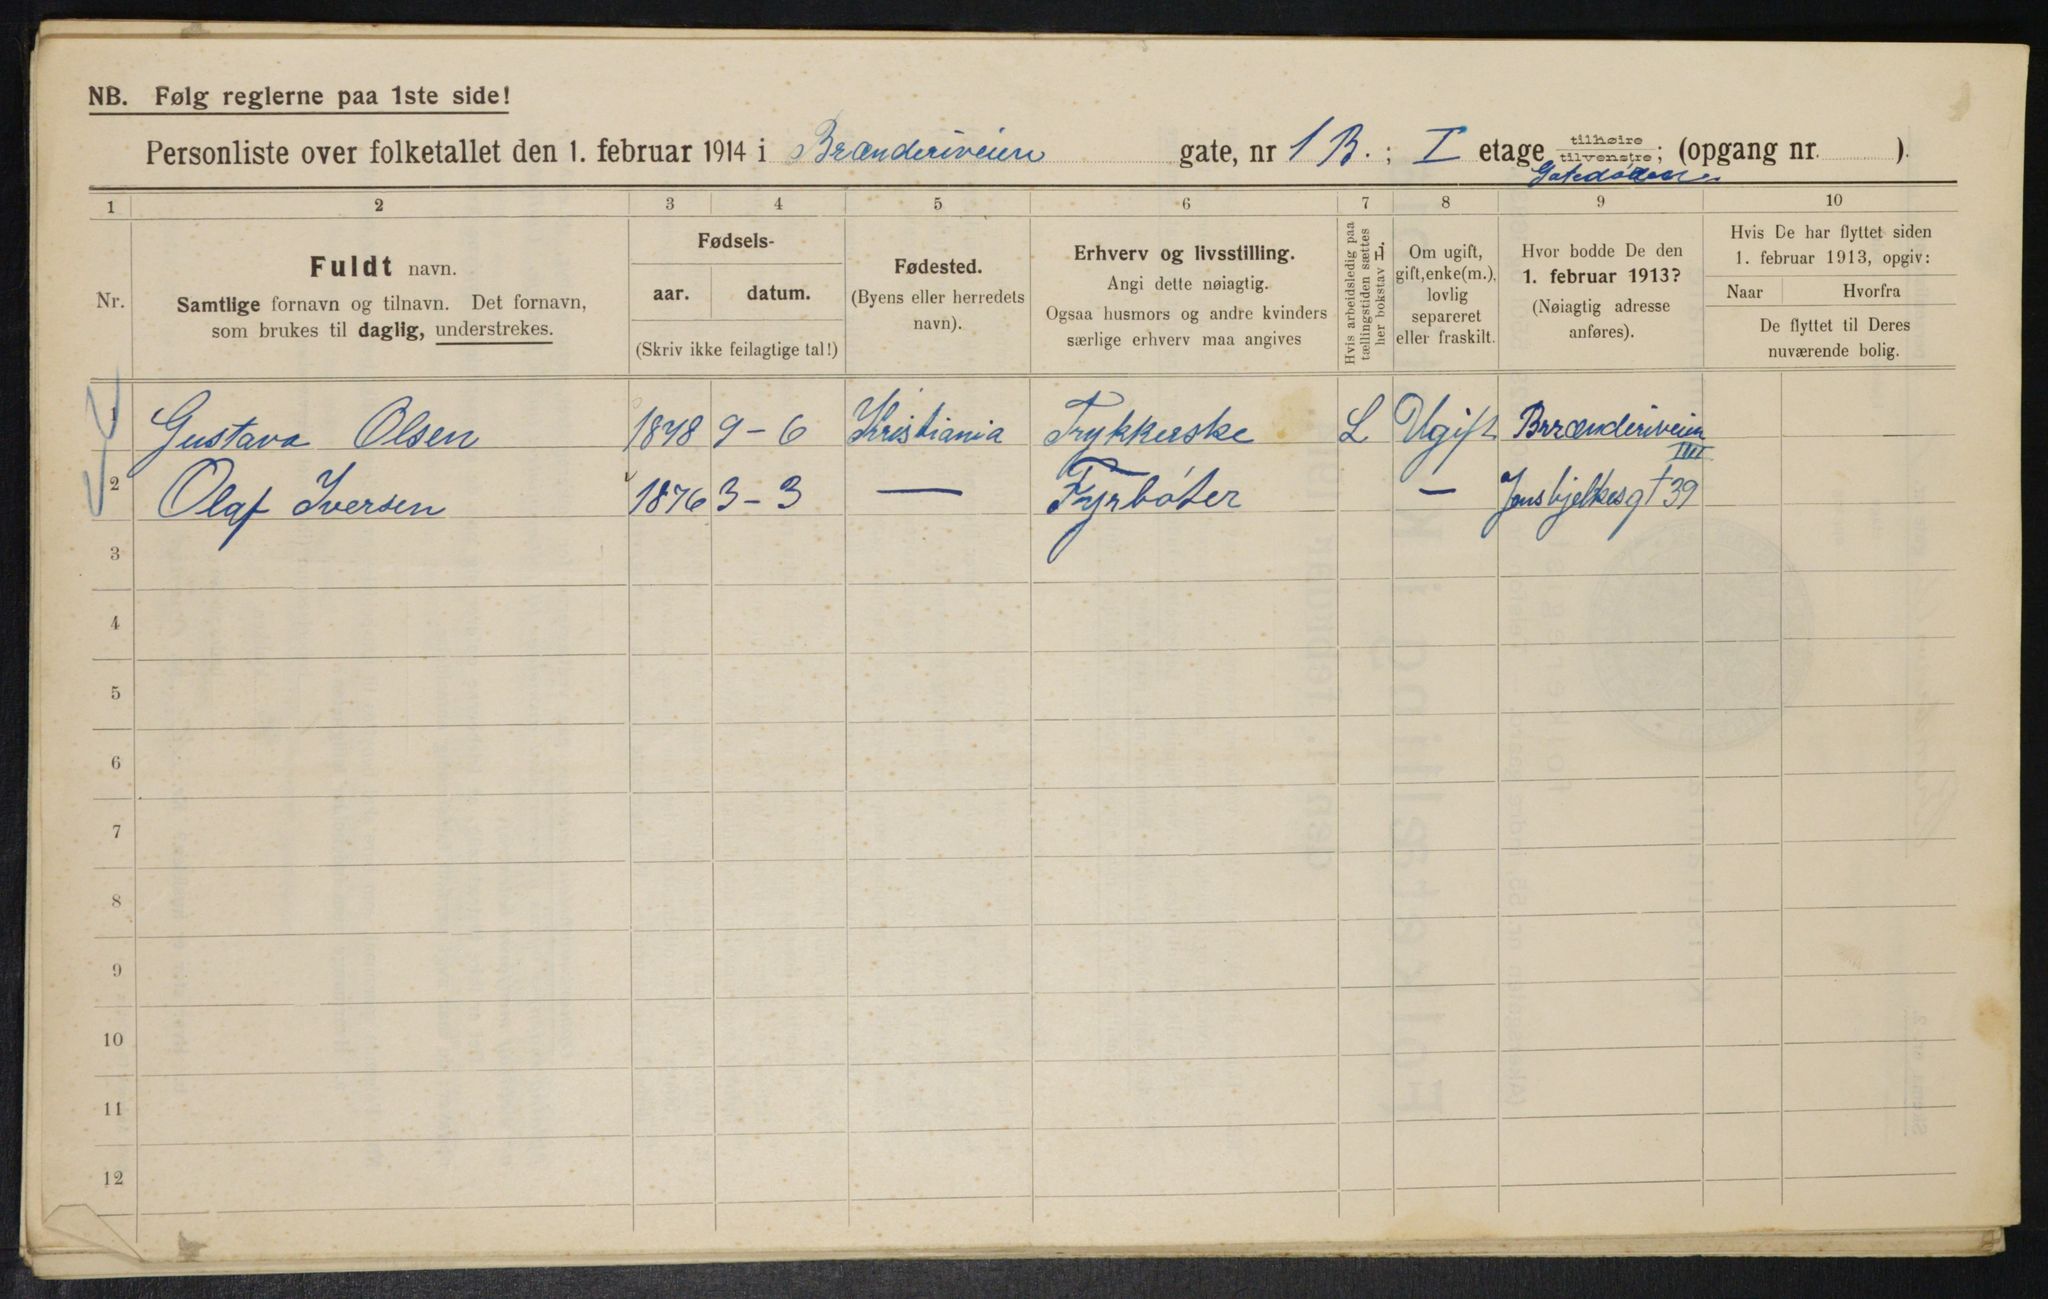 NB. Følg reglerne paa 1ste side!
Personliste over folketallet den 1. februar 1914 i Brænderiveien gate, nr 1 B. ; I etage tilhøire tilvenstre ; (opgang nr. ).
1 2 3 4 5 6 7 8 9 10
Nr.
Fuldt navn.
Samtlige fornavn og tilnavn. Det fornavn,
som brukes til daglig, understrekes.
Fødsels-
aar. datum.
(Skriv ikke feilagtige tal!)
Fødested.
(Byens eller herredets
navn).
Erhverv og livsstilling.
Angi dette nøiagtig.
Ogsaa husmors og andre kvinders
særlige erhverv maa angives
Hvis arbeidsledig paa
tællingstiden sættes
her bokstav L.
Om ugift,
gift, enke(m.),
lovlig
separeret
eller fraskilt.
Hvor bodde De den
1. februar 1913?
(Nøiagtig adresse
anføres).
Hvis De har flyttet siden
1. februar 1913, opgiv:
Naar Hvorfra
De flyttet til Deres
nuværende bolig.
1 Gustava Olsen 1878 9-6 Kristiania Trykkerske L Ugift Brænderiveien
III
2 Olaf Iversen 1876 3-3 — Fyrbøter — Jens bjelkesgt 39
3
4
5
6
7
8
9
10
11
12